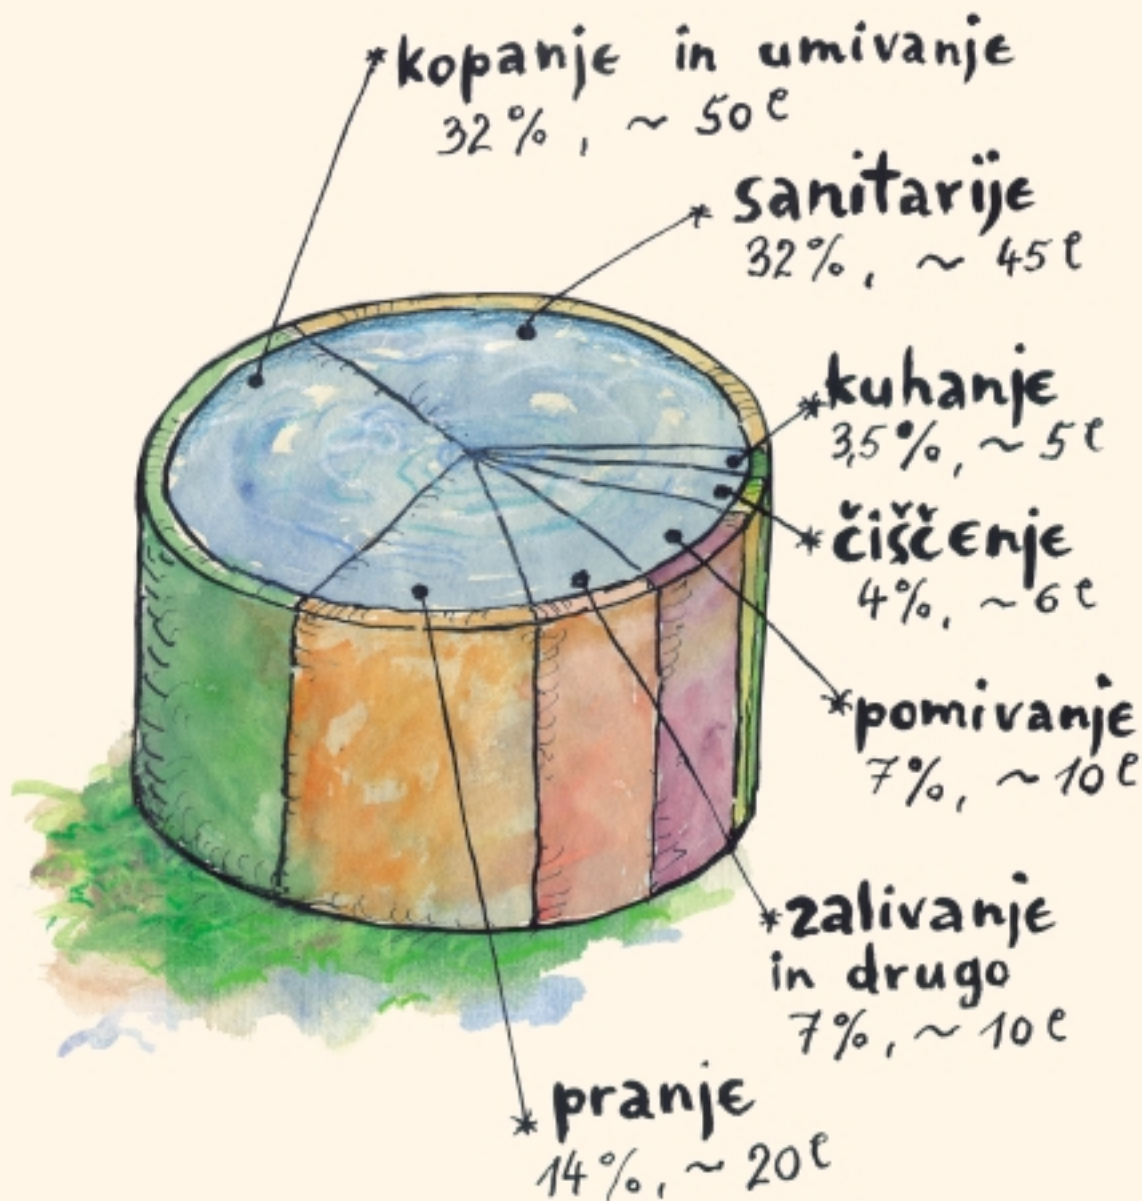 *kopanje in umivanje
32%, ~ 50 l
* sanitarije
32%, ~ 45 l
*kuhanje
3,5%, ~ 5 l
*čiščenje
4%, ~ 6 l
*pomivanje
7%, ~ 10 l
*zalivanje
in drugo
7%, ~ 10 l
* pranje
14%, ~ 20 l